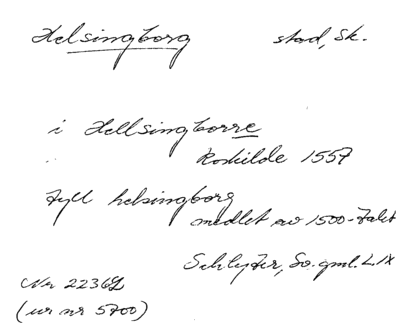 Helsingborg stad, Sk.
i Hellsingborre
Roskilde 1557
tyll helsingborg
medlet av 1500-talet
Schlyter, Sv. gml. L IX
Nr 2236
(ur nr 5700)